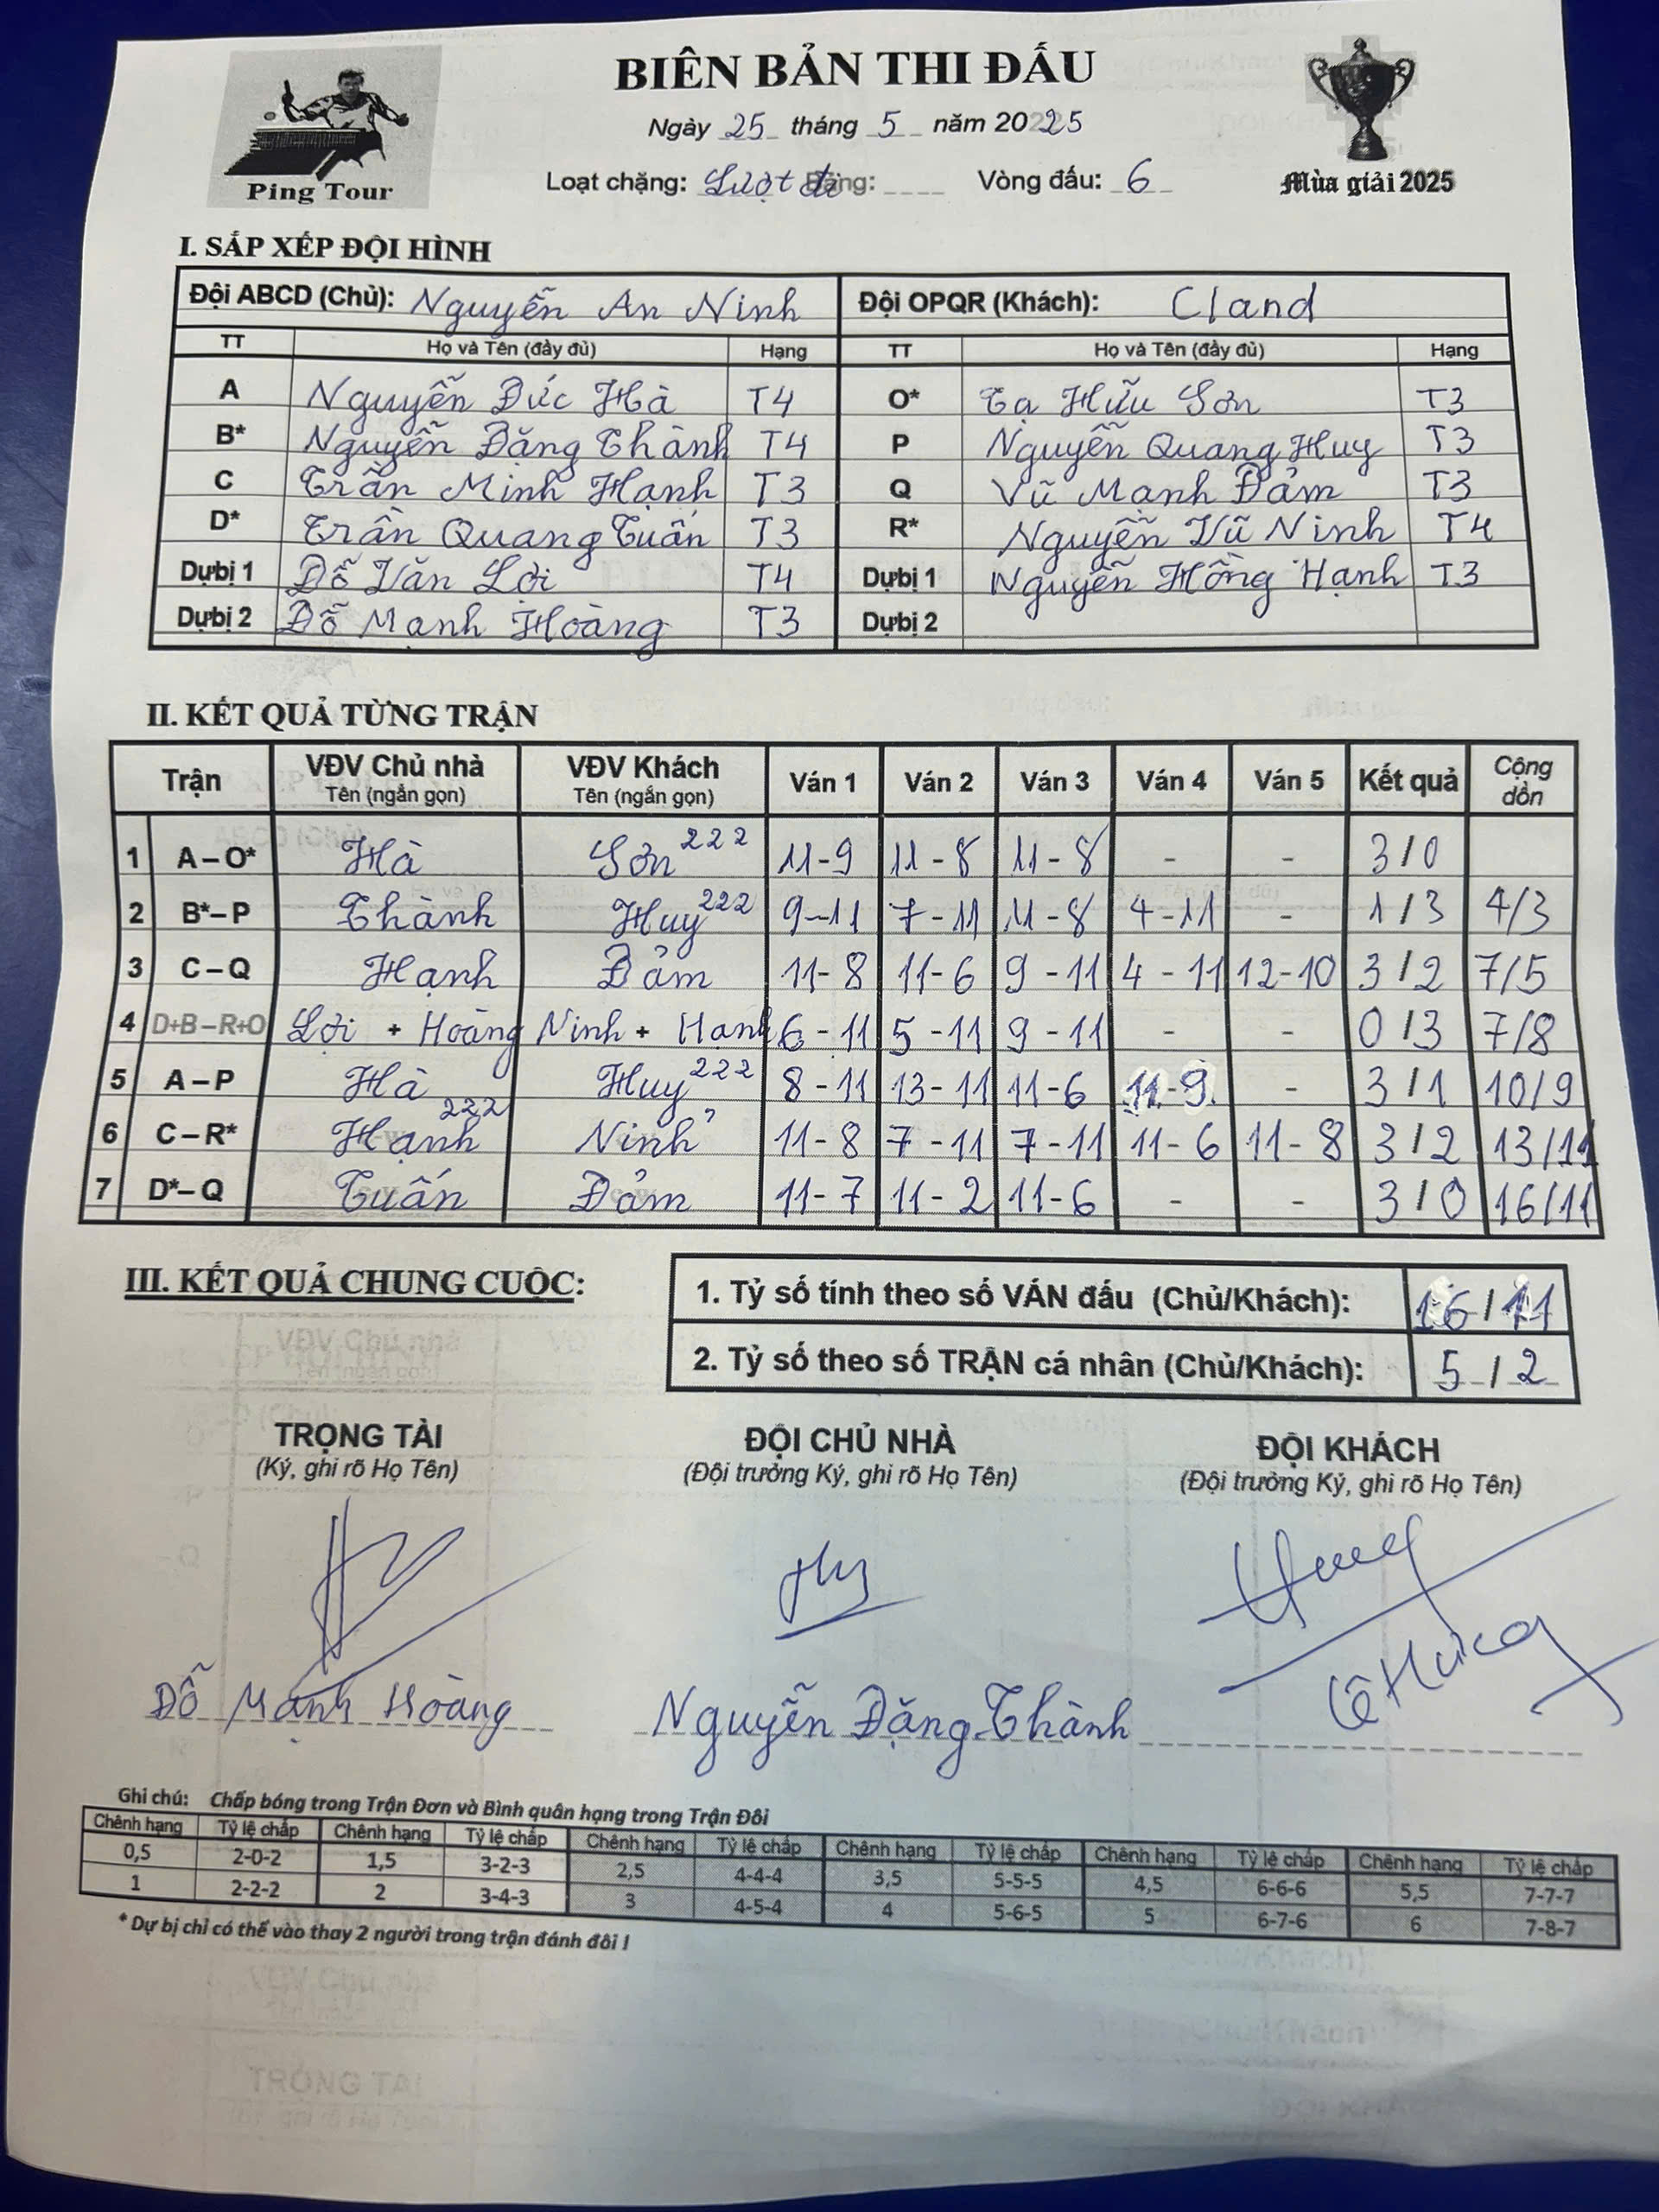 BIÊN BẢN THI ĐẤU
Ngày 25 tháng 5 năm 2025
Loạt chặng: Lượt đi Bảng: Vòng đấu: 6
Ping Tour
Mùa giải 2025
I. SẮP XẾP ĐỘI HÌNH
Đội ABCD (Chủ): Nguyễn An Ninh Đội OPQR (Khách): Cland
TT Họ và Tên (đầy đủ) Hạng TT Họ và Tên (đầy đủ) Hạng
A Nguyễn Đức Hà T4 O* Tạ Hữu Sơn T3
B* Nguyễn Đăng Thành T4 P Nguyễn Quang Huy T3
C Trần Minh Hạnh T3 Q Vũ Mạnh Đảm T3
D* Trần Quang Tuấn T3 R* Nguyễn Vũ Ninh T4
Dự bị 1 Đỗ Văn Lợi T4 Dự bị 1 Nguyễn Hồng Hạnh T3
Dự bị 2 Đỗ Mạnh Hoàng T3 Dự bị 2
II. KẾT QUẢ TỪNG TRẬN
Trận VĐV Chủ nhà Tên (ngắn gọn) VĐV Khách Tên (ngắn gọn) Ván 1 Ván 2 Ván 3 Ván 4 Ván 5 Kết quả Cộng dồn
1 A – O* Hà Sơn 222 11-9 11-8 11-8 - - 3/0
2 B* – P Thành Huy 222 9-11 7-11 11-8 4-11 - 1/3 4/3
3 C – Q Hạnh Đảm 11-8 11-6 9-11 4-11 12-10 3/2 7/5
4 D+B – R+O Lợi + Hoàng Ninh + Hạnh 6-11 5-11 9-11 - - 0/3 7/8
5 A – P Hà Huy 222 8-11 13-11 11-6 11-9 - 3/1 10/9
6 C – R* Hạnh 222 Ninh 11-8 7-11 7-11 11-6 11-8 3/2 13/11
7 D* – Q Tuấn Đảm 11-7 11-2 11-6 - - 3/0 16/11
III. KẾT QUẢ CHUNG CUỘC:
1. Tỷ số tính theo số VÁN đấu (Chủ/Khách): 16/11
2. Tỷ số theo số TRẬN cá nhân (Chủ/Khách): 5/2
TRỌNG TÀI ĐỘI CHỦ NHÀ ĐỘI KHÁCH
(Ký, ghi rõ Họ Tên) (Đội trưởng Ký, ghi rõ Họ Tên) (Đội trưởng Ký, ghi rõ Họ Tên)
Đỗ Mạnh Hoàng Nguyễn Đăng Thành Lê Hùng
Ghi chú: Chấp bóng trong Trận Đơn và Bình quân hạng trong Trận Đôi
Chênh hạng Tỷ lệ chấp Chênh hạng Tỷ lệ chấp Chênh hạng Tỷ lệ chấp Chênh hạng Tỷ lệ chấp Chênh hạng Tỷ lệ chấp Chênh hạng Tỷ lệ chấp
0,5 2-0-2 1,5 3-2-3 2,5 4-4-4 3,5 5-5-5 4,5 6-6-6 5,5 7-7-7
1 2-2-2 2 3-4-3 3 4-5-4 4 5-6-5 5 6-7-6 6 7-8-7
* Dự bị chỉ có thể vào thay 2 người trong trận đánh đôi !